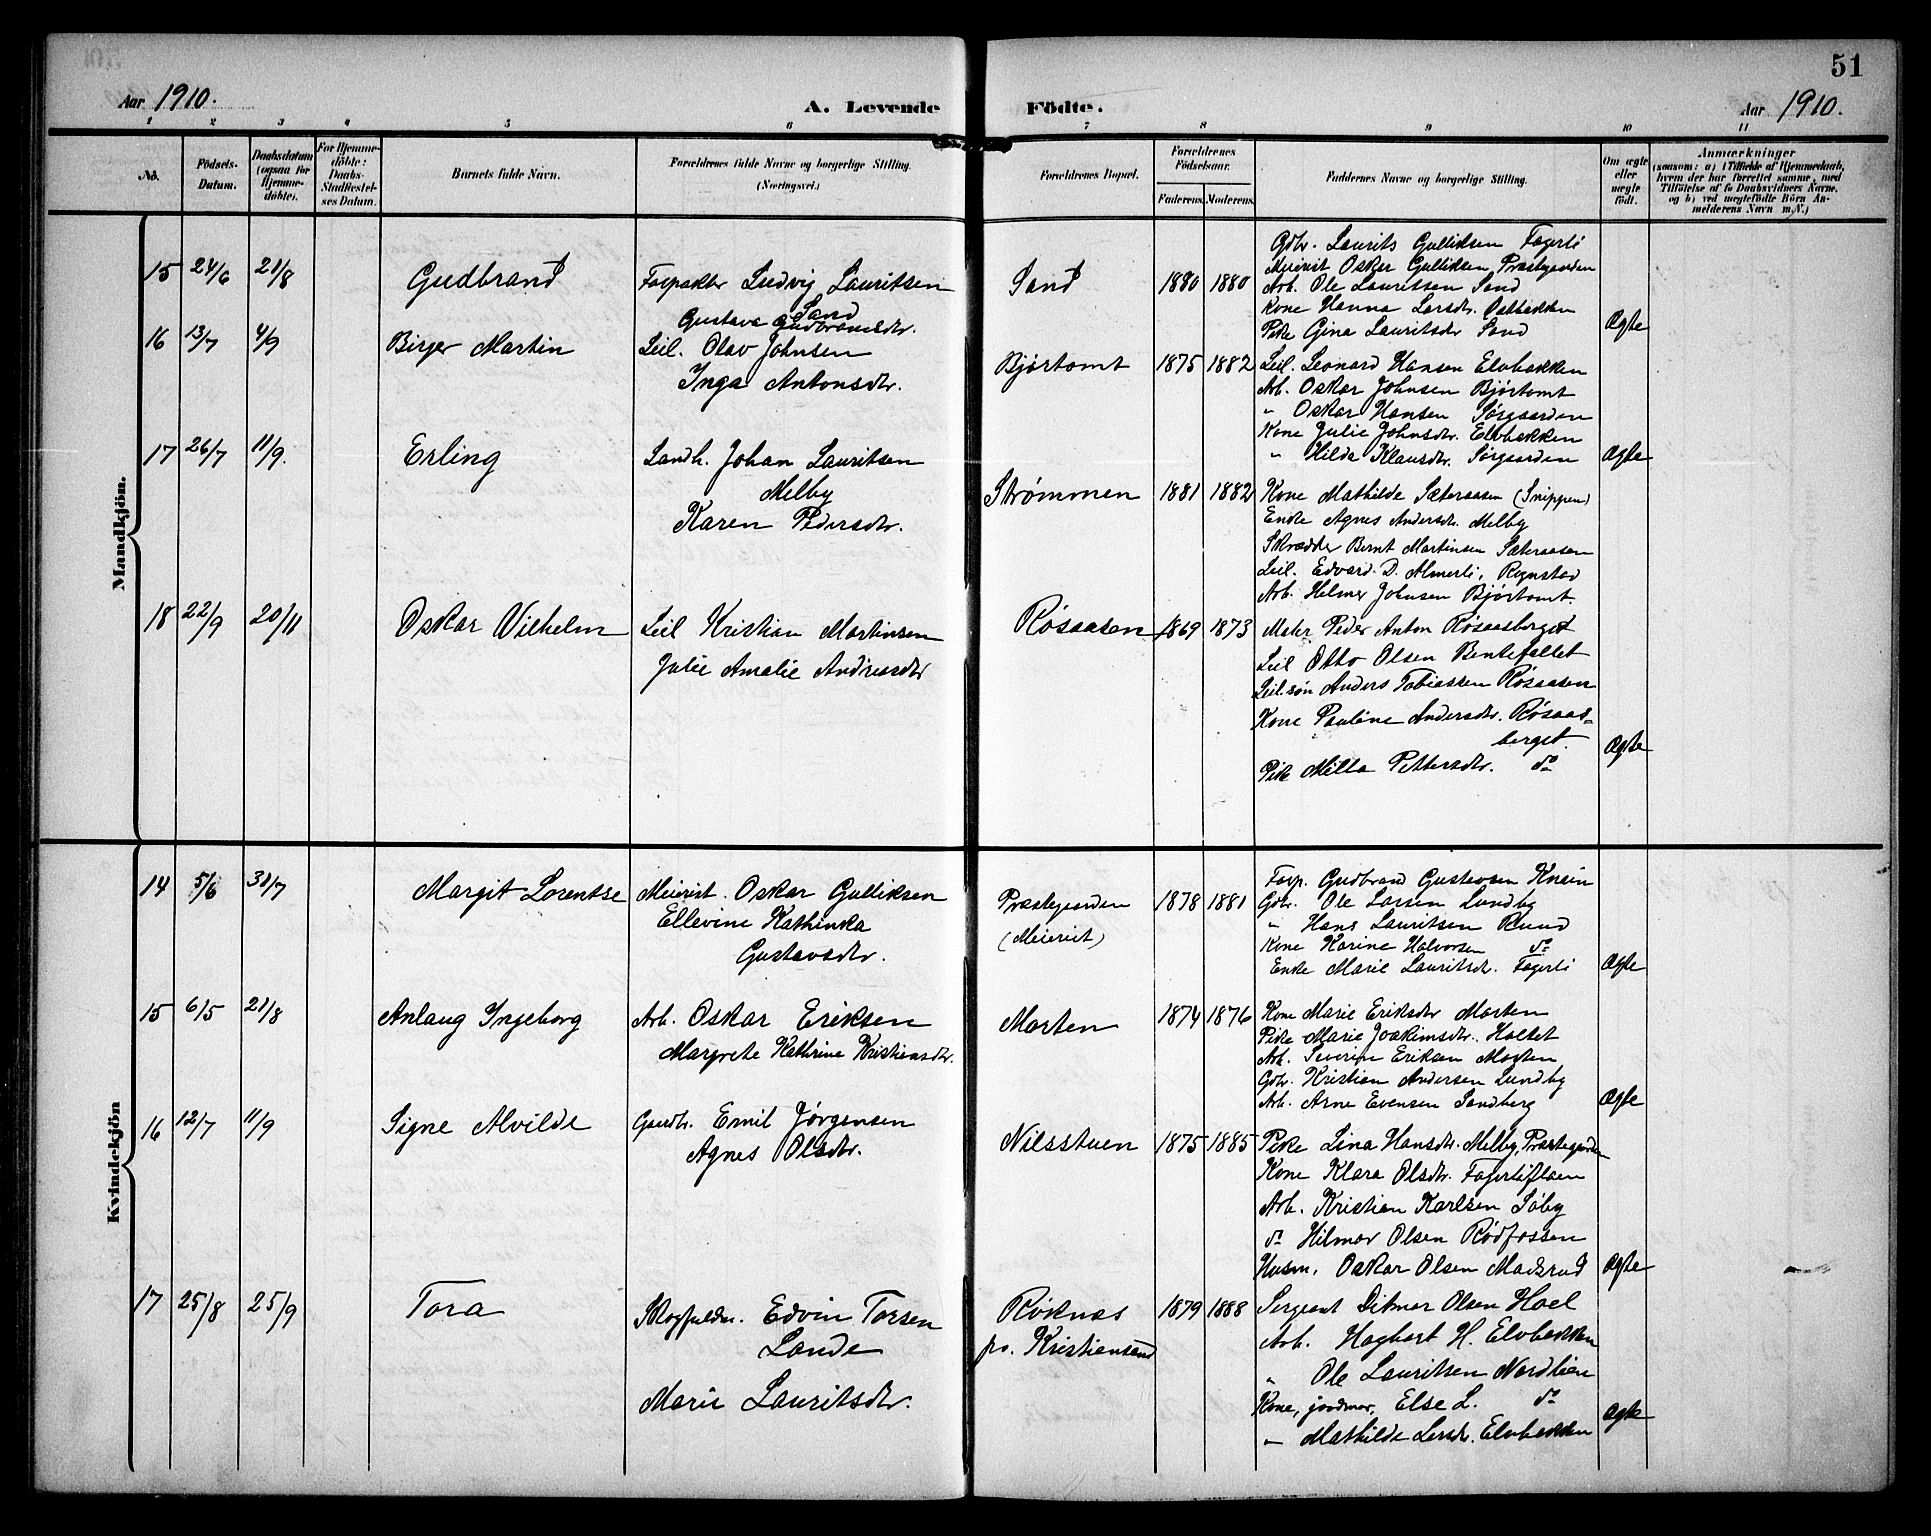 51
Aar 1910. A. Levende Födte. Aar 1910.
1 2 3 4 5 6 7 8 9 10 11
No.
Födsels-Datum.
Daabsdatum (ogsaa for Hjemmedöbte).
For Hjemmedöbte: Daabs-Stadfæstelses Datum.
Barnets fulde Navn.
Forældrenes fulde Navne og borgerlige Stilling. (Næringsvei.)
Forældrenes Bopæl.
Forældrenes Födselsaar.
Faderens. Moderens.
Faddernes Navne og borgerlige Stilling.
Om ægte eller uægte födt.
Anmærkninger
(saasom: a) i Tilfælde af Hjemmedaab, hvem der har forrettet samme, med Tilföielse af to Daabsvidners Navne, og b) ved uægtefödte Börn Anmelderens Navn m.V.)
Mandkjön.
15 24/6 21/8 Gudbrand Forpakter Ludvig Lauritsen Sand
Gustava Gudbrandsdtr.
Sand 1880 1880
Gbr. Laurits Gulliksen Fagerli
Meierist Oskar Gulliksen Præstegaarden
Arb. Ole Lauritsen Sand
Kone Hanna Larsdtr.
Pike Gina Lauritsdtr Sand Ægte
16 13/7 4/9 Birger Martin Leil. Olav Johnsen
Inga Antonsdtr.
Bjørtomt 1875 1882
Leil. Leonard Hansen Elvbakken
Arb. Oskar Johnsen Bjørtomt
" Oskar Hansen Sørgaarden
Kone Julie Johnsdtr. Elvbakken
" Hilda Klausdtr. Sørgaarden Ægte
17 26/7 11/9. Erling Landh. Johan Lauritsen
Melby
Karen Pedersdtr.
Strømmen 1881 1882
Kone Mathilde Sæteraasen (Snippen)
Enke Agnes Andersdtr. Melby
Skrædder Bernt Martinsen Sæteraasen
Leil. Edvard D. Almerli, Rognstad
Arb. Helmer Johnsen Bjørtomt.
18 22/9 20/11 Oskar Vilhelm Leil Kristian Martinsen
Julie Amalie Andreasdtr
Røsaasen 1869 1873
Matr Peder Anton Røsaasberget
Leil Otto Olsen Bentefallet
Leil.søn Anders Tobiassen Røsaasen
Kone Pauline Andersdtr. Røsaas=
berget. Ægte
Pike Milla Pettersdtr. do
Kvindekjön
14 5/6 31/7 Margit Lorentse Meierist. Oskar Gulliksen
Ellevine Kathinka
Gustavsdtr.
Præstegaarden
(Meieriet)
1878 1881
Forp. Gudbrand Gustavsen Knein
Gbr. Ole Larsen Lundby
" Hans Lauritsen Ruud
Kone Karine Halvorsen do
Enke Marie Lauritsdtr. Fagerli Ægte
15 6/5 21/8 Anlaug Ingeborg Arb. Oskar Eriksen
Margrete Kathrine Kristiansdtr.
Morten 1874 1876
Kone Marie Eriksdtr Morten
Pike Marie Joakimsdtr. Holtet
Arb. Severin Eriksen Morten
Gbr. Kristian Andersen Lundby
Arb. Arne Evensen Sandberg Ægte
16 12/7 11/9 Signe Alvilde Gaardbr. Emil Jørgensen
Agnes Olsdtr.
Nilsstuen 1875 1885
Pike Lina Hansdtr. Melby, Præstegaarden
Kone Klara Olsdtr. Fagerliflaen
Arb. Kristian Karlsen Søby
do Hilmar Olsen Rødfossen
Husm. Oskar Olsen Madsrud Ægte
17 25/8 25/9 Tora Skogfuldm. Edvin Torsen
Lande
Marie Lauritsdtr.
Røknæs
pr. Kristiansand
1879 1888
Sergeant Ditmar Olsen Hoel
Arb. Hagbart H. Elvbakken
" Ole Lauritsen Nordlien
Kone, jordmor, Else L. do
" Mathilde Larsdtr. Elvbakken Ægte